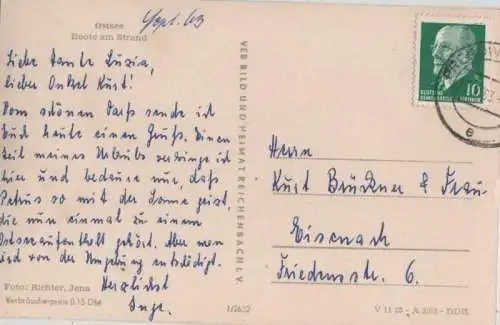 Ostsee
Boote am Strand
Sept. 63
Liebe Tante Luzia,
lieber Onkel Kurt!
Vom schönen Darß sende ich
Euch heute einen Gruß. Einen
Teil meines Urlaubs verbringe ich
hier und bedaure nur, daß
Petrus so mit der Sonne geizt,
die nun einmal zu einem
Ostseeaufenthalt gehört. Aber man
wird von der Umgebung entschädigt.
Herzlichst
Inge.
Foto: Richter, Jena
Verbraucherpreis 0,15 DM
VEB BILD UND HEIMAT REICHENBACH I. V.
1/2612
10
DEUTSCHE
DEMOKRATISCHE REPUBLIK
e
Herrn
Kurt Brückner & Frau
Eisenach
Friedensstr. 6.
V 11 28 - A 2/63 - DDR